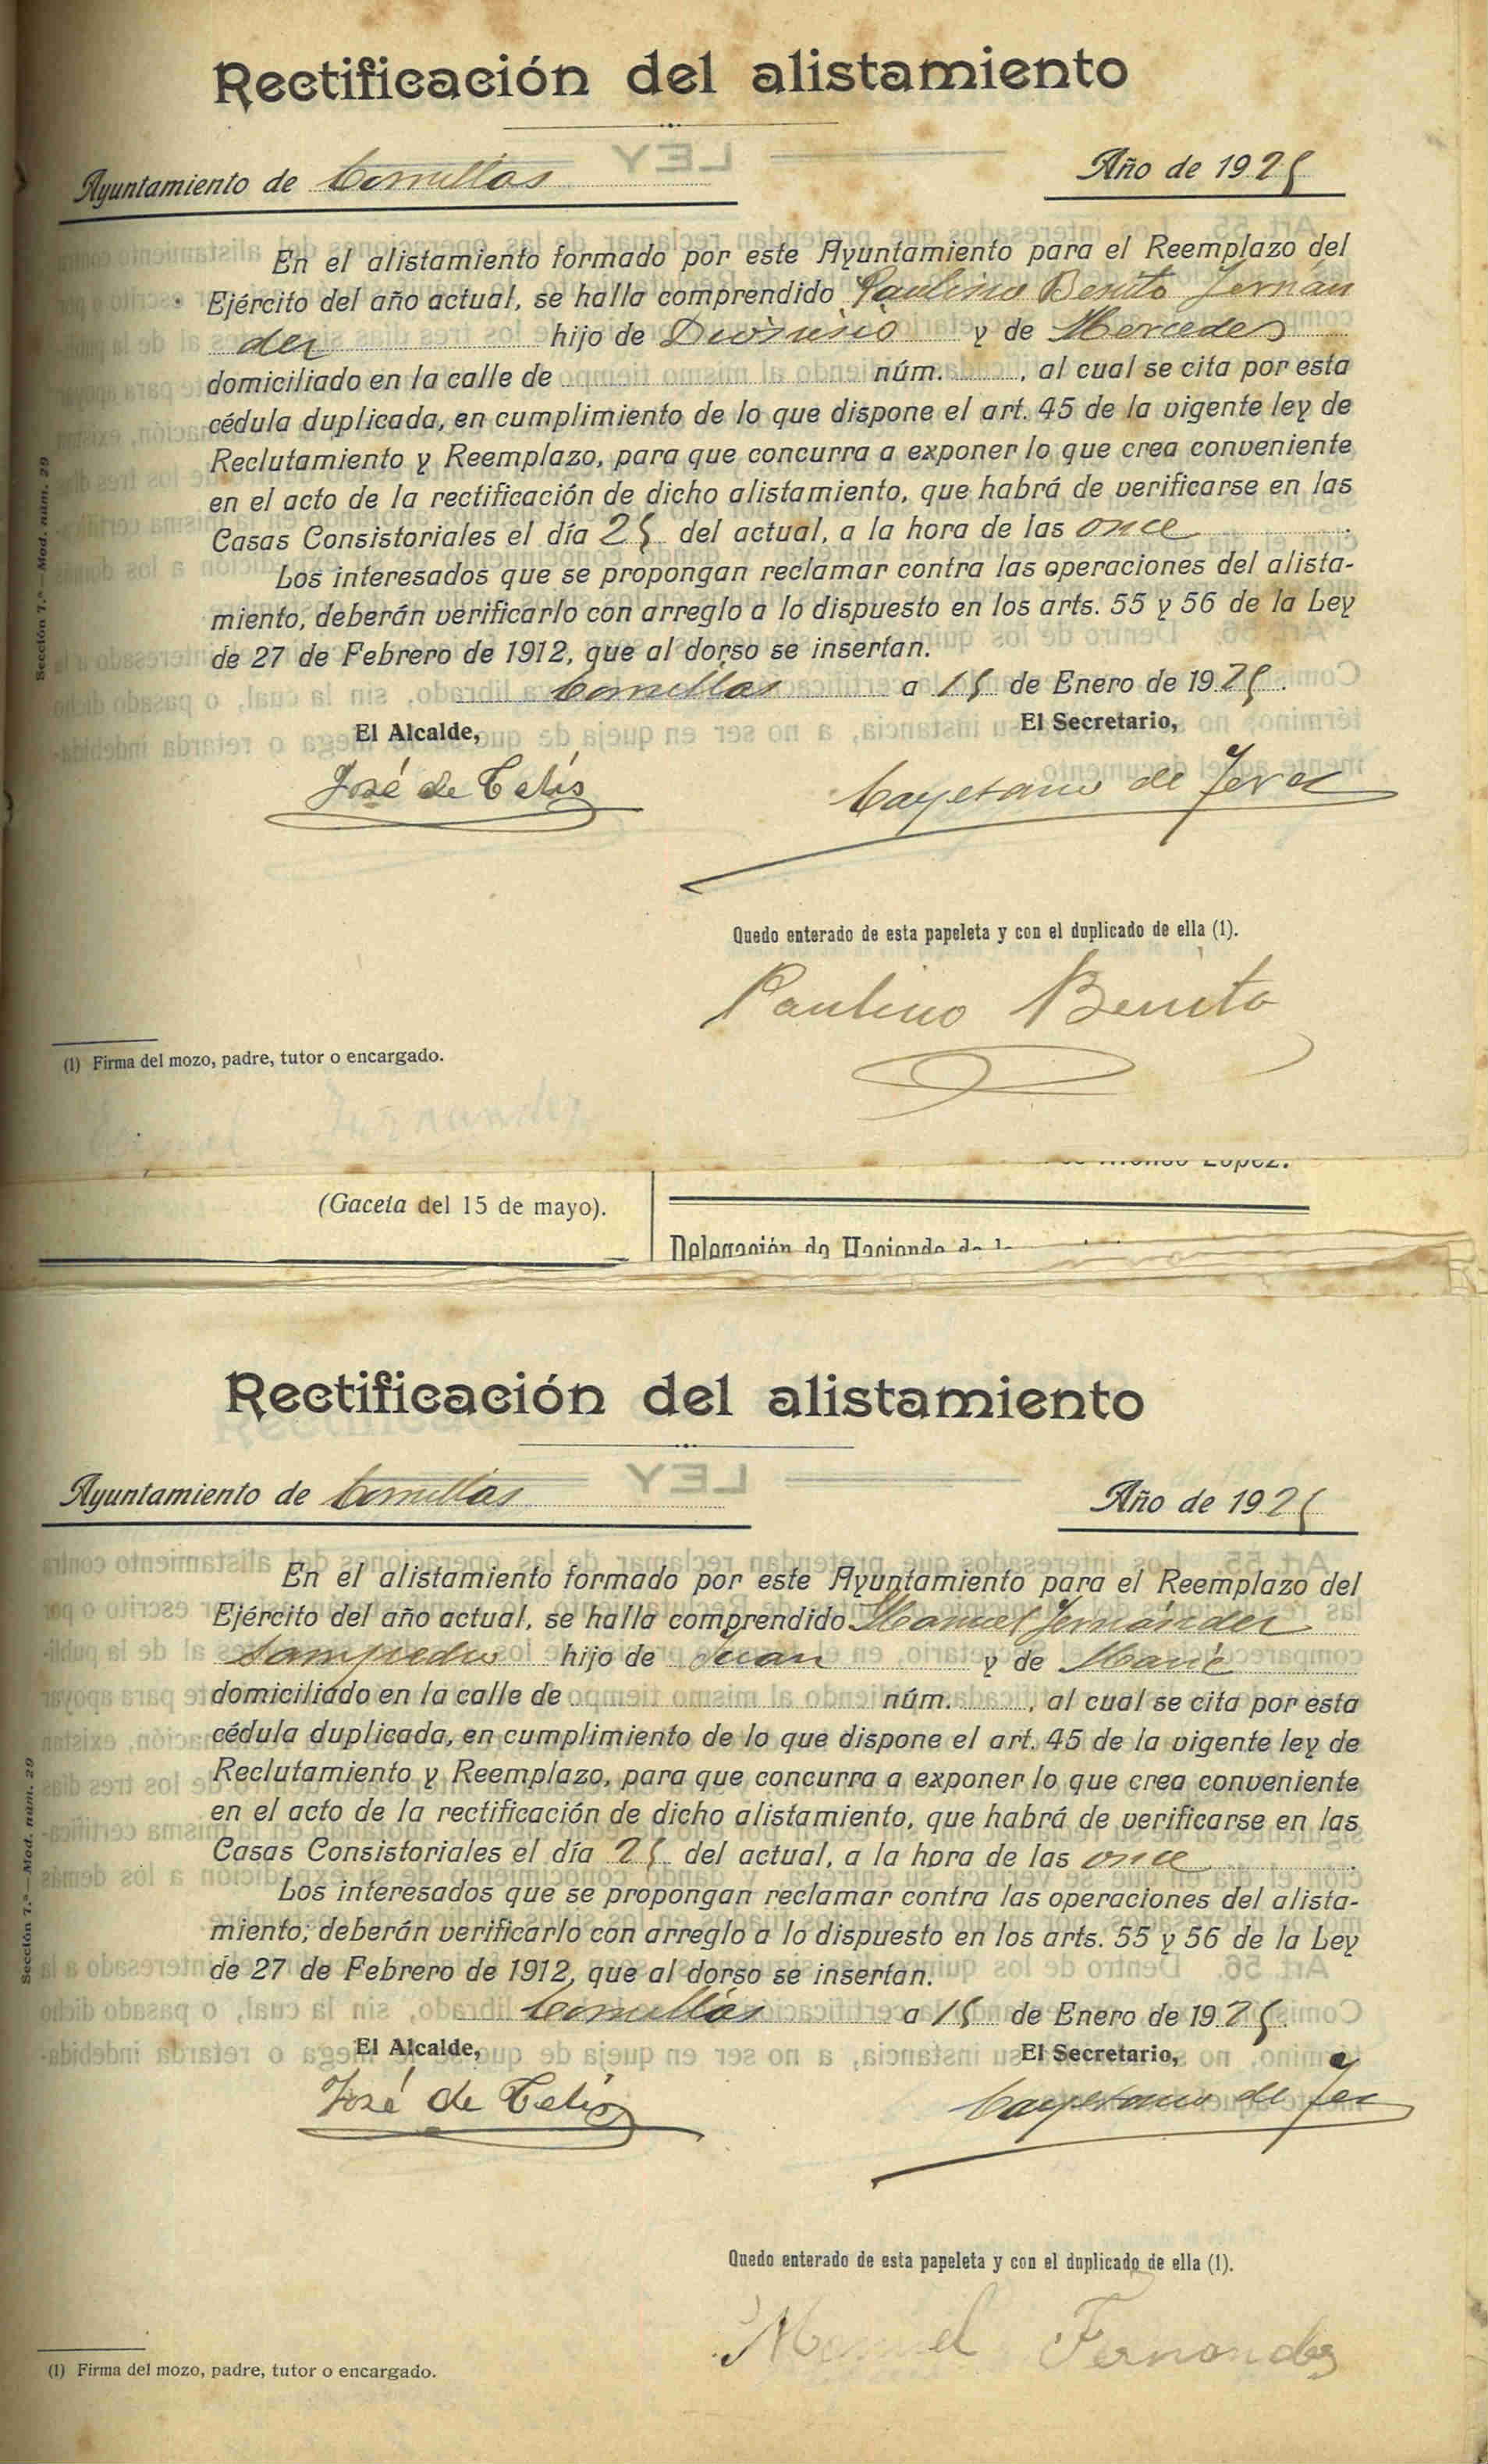 Rectificación del alistamiento
Ayuntamiento de Comillas
Año de 1925
En el alistamiento formado por este Ayuntamiento para el Reemplazo del
Ejército del año actual, se halla comprendido Paulino Benito Fernán
dez hijo de Dionisio y de Mercedes
domiciliado en la calle de núm. , al cual se cita por esta
cédula duplicada, en cumplimiento de lo que dispone el art. 45 de la vigente ley de
Reclutamiento y Reemplazo, para que concurra a exponer lo que crea conveniente
en el acto de la rectificación de dicho alistamiento, que habrá de verificarse en las
Casas Consistoriales el día 25 del actual, a la hora de las once.
Los interesados que se propongan reclamar contra las operaciones del alista-
miento, deberán verificarlo con arreglo a lo dispuesto en los arts. 55 y 56 de la Ley
de 27 de Febrero de 1912, que al dorso se insertan.
Comillas a 15 de Enero de 1925.
El Alcalde, El Secretario,
José de Celis Cayetano de
Quedo enterado de esta papeleta y con el duplicado de ella (1).
Paulino Benito
(1) Firma del mozo, padre, tutor o encargado.
Sección 7.ª—Mod. núm. 29
López.
(Gaceta del 15 de mayo).
Delegación de Hacienda de
Rectificación del alistamiento
Ayuntamiento de Comillas
Año de 1925
En el alistamiento formado por este Ayuntamiento para el Reemplazo del
Ejército del año actual, se halla comprendido Manuel Fernández
Sampedro hijo de Juan y de María
domiciliado en la calle de núm. , al cual se cita por esta
cédula duplicada, en cumplimiento de lo que dispone el art. 45 de la vigente ley de
Reclutamiento y Reemplazo, para que concurra a exponer lo que crea conveniente
en el acto de la rectificación de dicho alistamiento, que habrá de verificarse en las
Casas Consistoriales el día 25 del actual, a la hora de las once.
Los interesados que se propongan reclamar contra las operaciones del alista-
miento, deberán verificarlo con arreglo a lo dispuesto en los arts. 55 y 56 de la Ley
de 27 de Febrero de 1912, que al dorso se insertan.
Comillas a 15 de Enero de 1925.
El Alcalde, El Secretario,
José de Celis Cayetano de
Quedo enterado de esta papeleta y con el duplicado de ella (1).
Manuel Fernandez
(1) Firma del mozo, padre, tutor o encargado.
Sección 7.ª—Mod. núm. 29